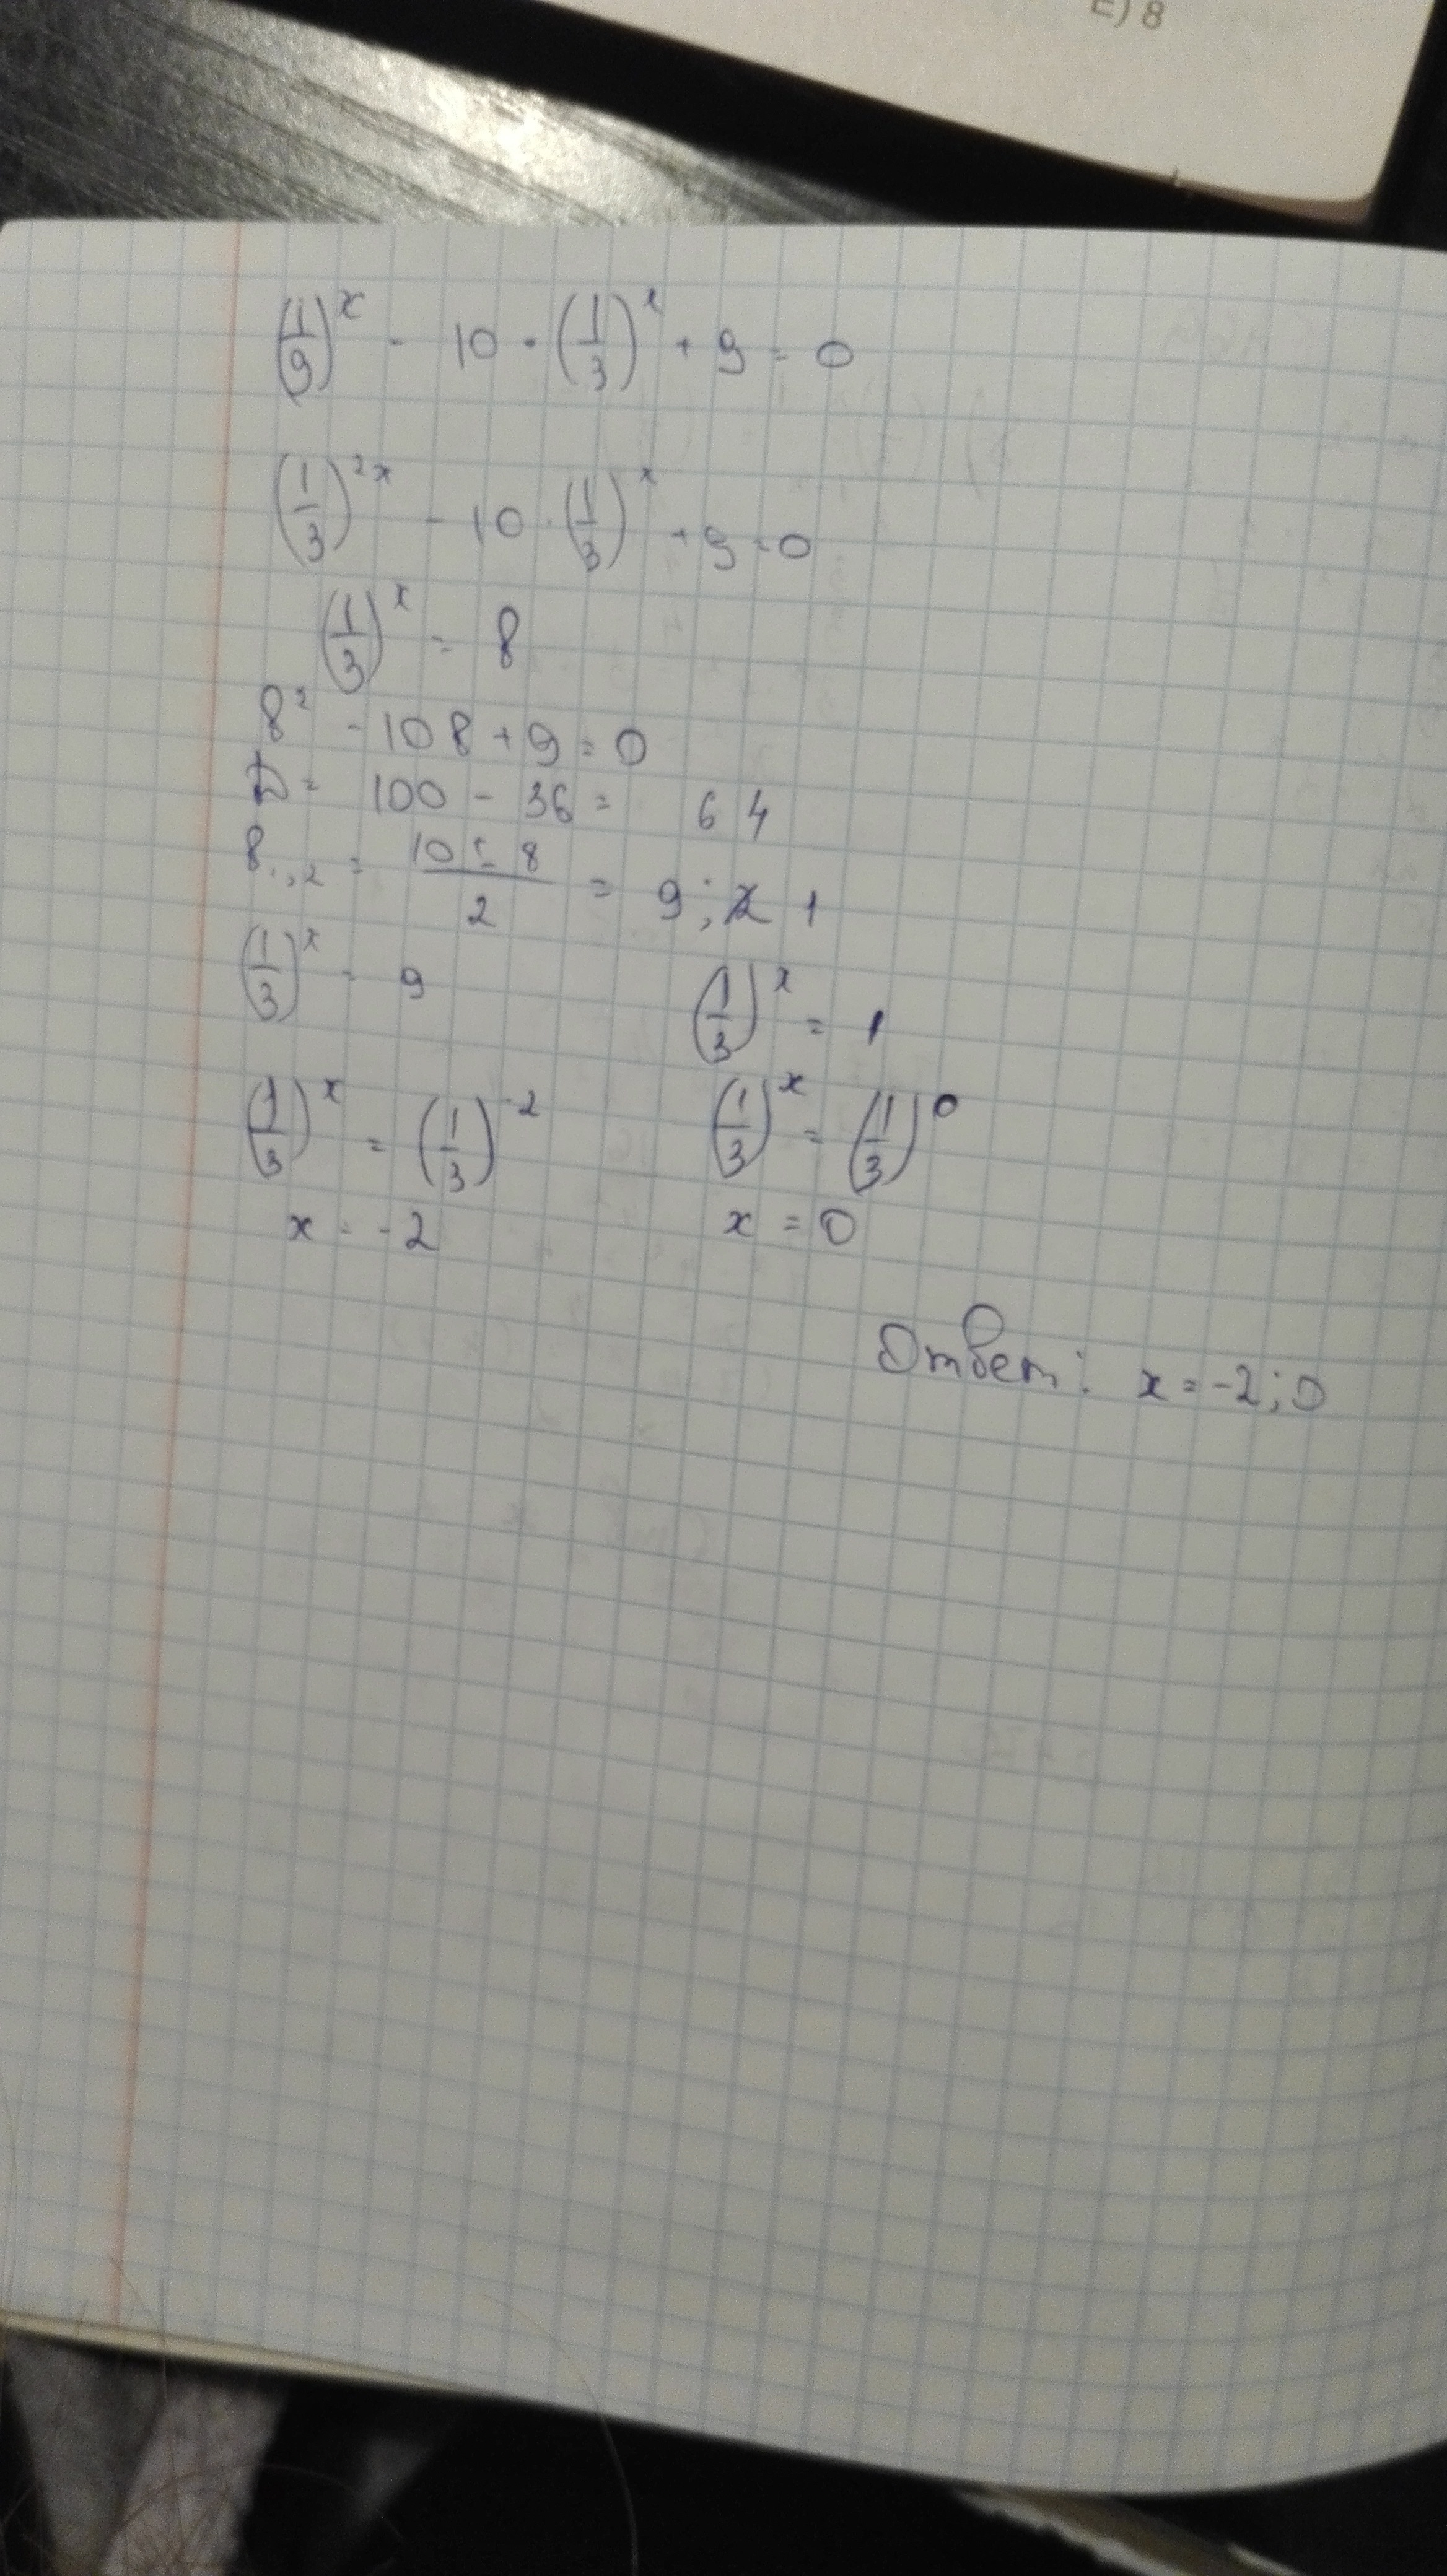 E) 8
(1/9)^x - 10 · (1/3)^x + 9 = 0
(1/3)^2x - 10 · (1/3)^x + 9 = 0
(1/3)^x = 8
8² - 108 + 9 = 0
D = 100 - 36 = 64
8₁,₂ = (10 ± 8)/2 = 9; 1
(1/3)^x = 9 (1/3)^x = 1
(1/3)^x = (1/3)^-2 (1/3)^x = (1/3)^0
x = -2 x = 0
Ответ: x = -2; 0